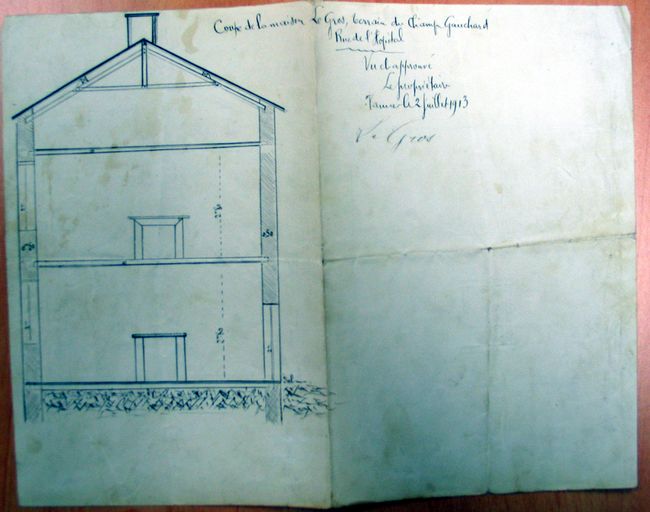 Coupe de la maison Le Gros, terrain du Champ Gauchard
Rue de l'hopital
Vu et approuvé
Le propriétaire
le 2 juillet 1913
Le Gros